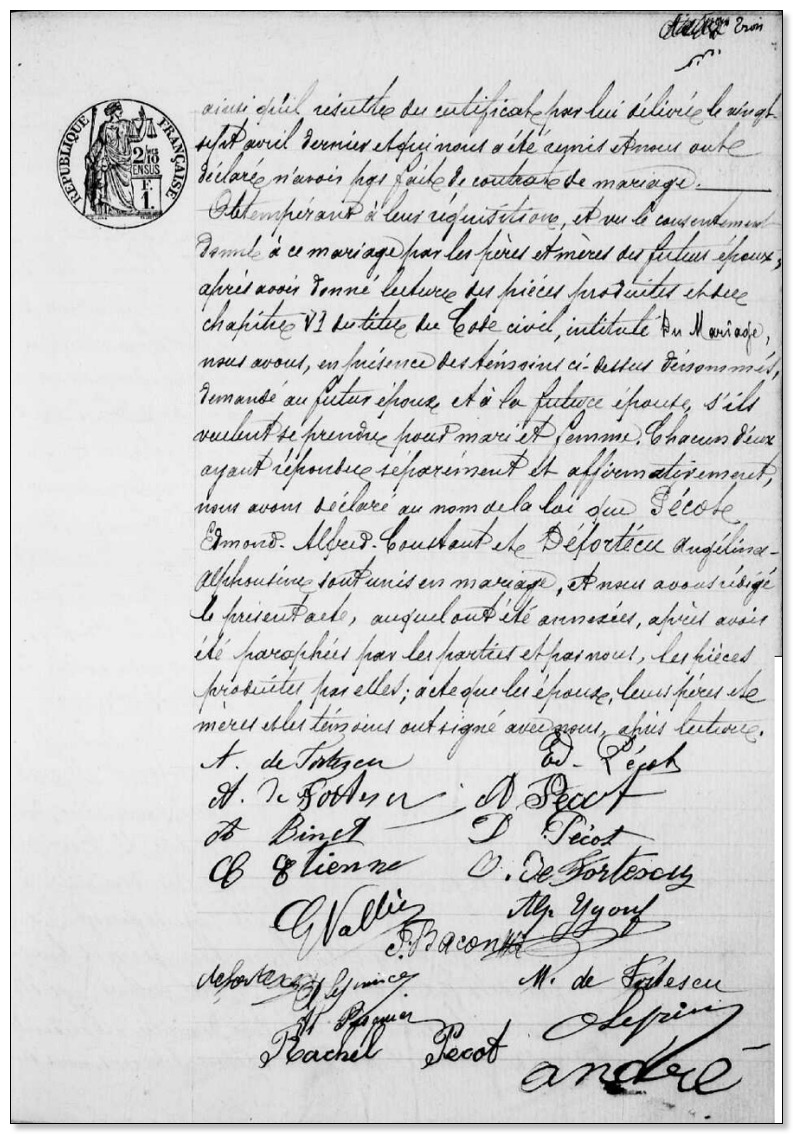 trois
RÉPUBLIQUE FRANÇAISE
2/10
EN SUS
F.
1.
ainsi qu'il résulte du certificat par lui délivré le vingt-
sept avril dernier et qui nous a été remis et nous ont
déclaré n'avoir pas fait de contrat de mariage.
Obtempérant à leur réquisition, et vu le consentement
donné à ce mariage par les pères et mères des futurs époux,
après avoir donné lecture des pièces produites et du
chapitre VI du titre du Code civil, intitulé Du Mariage,
nous avons, en présence des témoins ci-dessus dénommés,
demandé au futur époux et à la future épouse, s'ils
veulent se prendre pour mari et femme. Chacun d'eux
ayant répondu séparément et affirmativement,
nous avons déclaré au nom de la loi que Pécot
Edmond-Alfred-Constant et Défortécu Angélina-
Alphonsine sont unis en mariage, et nous avons rédigé
le présent acte, auquel ont été annexées, après avoir
été paraphées par les parties et par nous, les pièces
produites par elles; acte que les époux, leurs pères et
mères et les témoins ont signé avec nous, après lecture.
A. de Fortescu Ed. Pécot
A. de Fortescu A Pécot
A Binet D Pécot
E Etienne O. de Fortescu
G Vallée Alp Ygouf
P. Bacon
M. de Fortescu
Rachel Pecot
andré